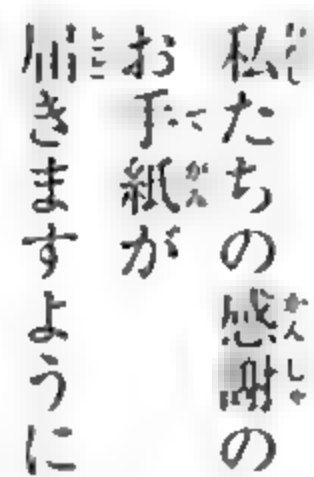 私たちの感謝の
お手紙が
届きますように